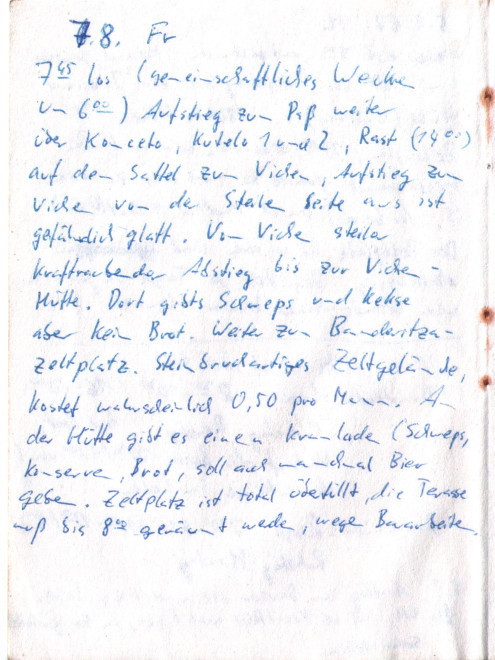 7.8. Fr
7⁴⁵ los (gemeinschaftliches Wecken
um 6⁰⁰) Aufstieg zum Paß weiter
über Konceto, Kutelo 1 und 2, Rast (14⁰⁰)
auf dem Sattel zum Vichen, Aufstieg zum
Vichen von der Steilen Seite aus ist
gefährlich glatt. Vom Vichen steiler
kraftraubender Abstieg bis zur Vichen-
Hütte. Dort gibts Schweps und Kekse
aber kein Brot. Weiter zum Banderitza-
zeltplatz. Steinbruchartiges Zeltgelände,
kostet wahrscheinlich 0,50 pro Mann. An
der Hütte gibt es einen Kramladen (Schweps,
Konserven, Brot, soll auch manchmal Bier
geben. Zeltplatz ist total überfüllt, die Terasse
muß bis 8⁰⁰ geräumt werden, wegen Bauarbeiten.